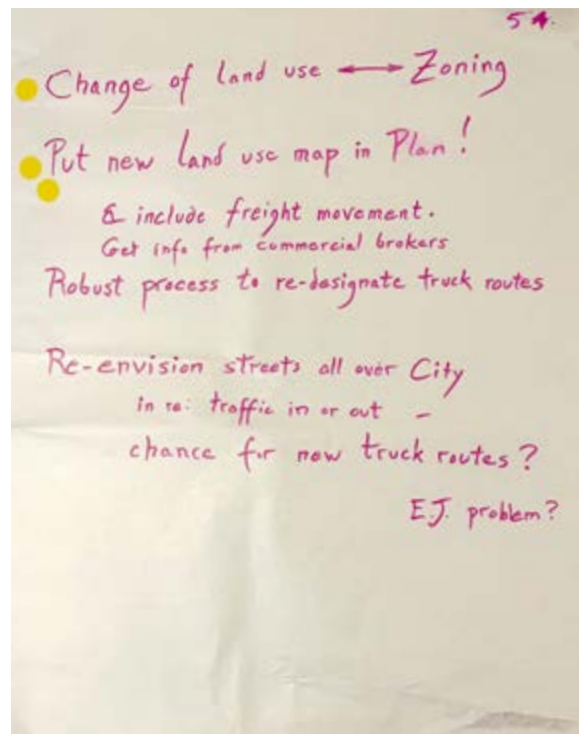 54.
Change of land use ↔ Zoning
Put new land use map in Plan!
& include freight movement.
Get info from commercial brokers
Robust process to re-designate truck routes
Re-envision streets all over City
in re: traffic in or out –
chance for new truck routes?
E.J. problem?